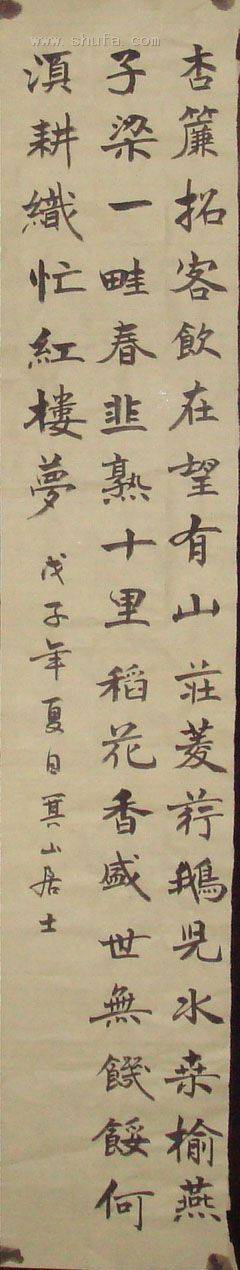 www.shufa.com
杏簾招客飲在望有山莊菱荇鵝兒水桑榆燕
子梁一畦春韭熟十里稻花香盛世無饑餒何
須耕織忙紅樓夢
戊子年夏日箕山居士